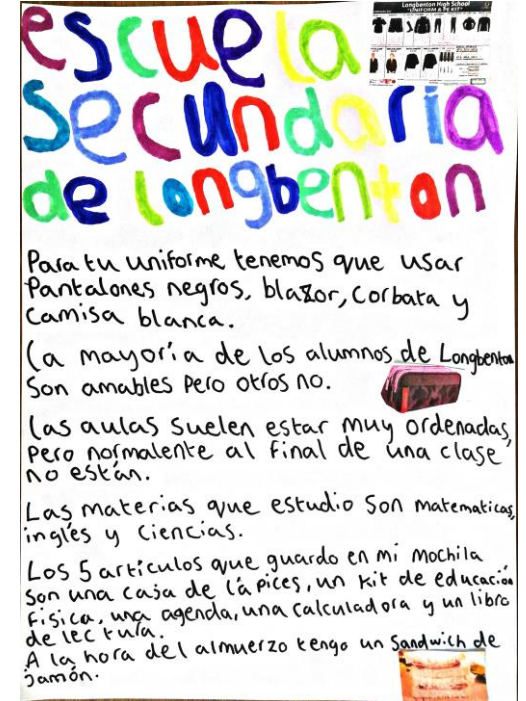 escuela
secundaria
de longbenton
Longbenton High School
"UNIFORM & PE KIT"
Para tu uniforme tenemos que usar
Pantalones negros, blazor, Corbata y
Camisa blanca.
La mayoría de los alumnos de Longbenton
Son amables Pero otros no.
Las aulas suelen estar muy ordenadas,
Pero normalente al final de una clase
no están.
Las materias que estudio Son matematicas,
inglés y Ciencias.
Los 5 artículos que guardo en mi mochila
Son una caja de lápices, un kit de educación
Física, una agenda, una calculadora y un libro
de lectura.
A la hora del almuerzo tengo un Sandwich de
jamón.